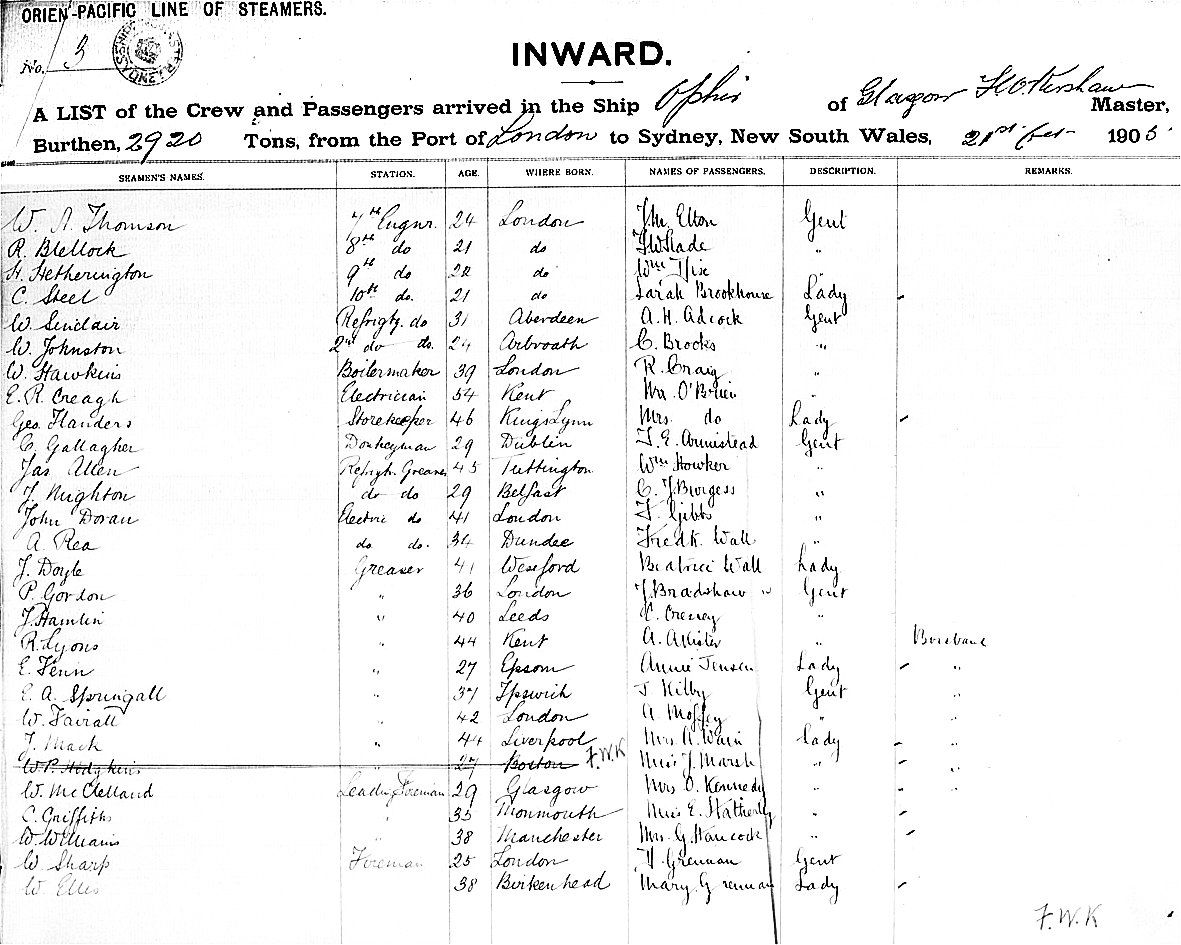 ORIEN-PACIFIC LINE OF STEAMERS.
No. 3
INWARD.
A LIST of the Crew and Passengers arrived in the Ship Ophir of Glasgow Master,
Burthen, 2920 Tons, from the Port of London to Sydney, New South Wales, 21st Feb 1905
SEAMEN'S NAMES. STATION. AGE. WHERE BORN. NAMES OF PASSENGERS. DESCRIPTION. REMARKS.
W. A. Thomson 7th Engnr. 24 London Elton Gent
R. Blellock 8th do 21 do "
H. Hetherington 9th do 22 do Wm "
C. Steel 10th do. 21 do Sarah Brookhouse Lady
W. Sinclair Refrigtg. do 31 Aberdeen A. H. Adcock Gent
W. Johnston 2nd do do. 24 Arbroath C. Brocks "
W. Hawkins Boilermaker 39 London R. Craig "
E. R. Creagh Electrician 54 Kent Mr. O'Brien "
Geo. Flanders Storekeeper 46 Kings Lynn Mrs. do Lady
C. Gallagher Donkeyman 29 Dublin J. E. Armistead Gent
Jas Allen Refrigtr. Greaser 45 Tuttington Wm Howker "
J. Nughton do do 29 Belfast C. J. Burgess "
John Doran Electric do 41 London F. Gibbs "
A. Rea do. do. 34 Dundee Fredk. Wall "
J. Doyle Greaser 41 Wexford Beatrice Wall Lady
P. Gordon " 36 London J. Bradshaw " Gent
J. Hamlin " 40 Leeds C. "
R. Lyons " 44 Kent A. " Brisbane
E. Fenn " 27 Epsom Annie Jensen Lady "
E. A. Springall " 37 Ipswich J Kilby Gent "
W. Fairall " 42 London A. "
J. Mack " 44 Liverpool Mrs Wain Lady "
W. P. Hodgkins " 27 Boston F.W.K Miss J. Marsh " "
W. McClelland Leadg Fireman 29 Glasgow Mrs O. Kennedy "
C. Griffiths " 35 Monmouth Miss E. Hatherly "
W Williams " 38 Manchester Mrs. G. Hancock "
W Sharp Fireman 25 London Grennan Gent
W. Ellis 38 Birkenhead Mary Grennan Lady
F.W.K